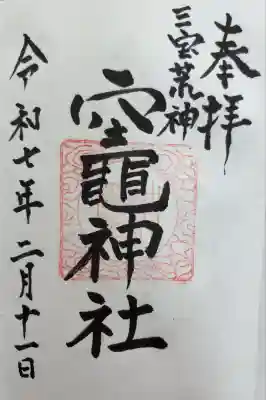 奉拝
三宝荒神
竈神社
令和七年二月十一日